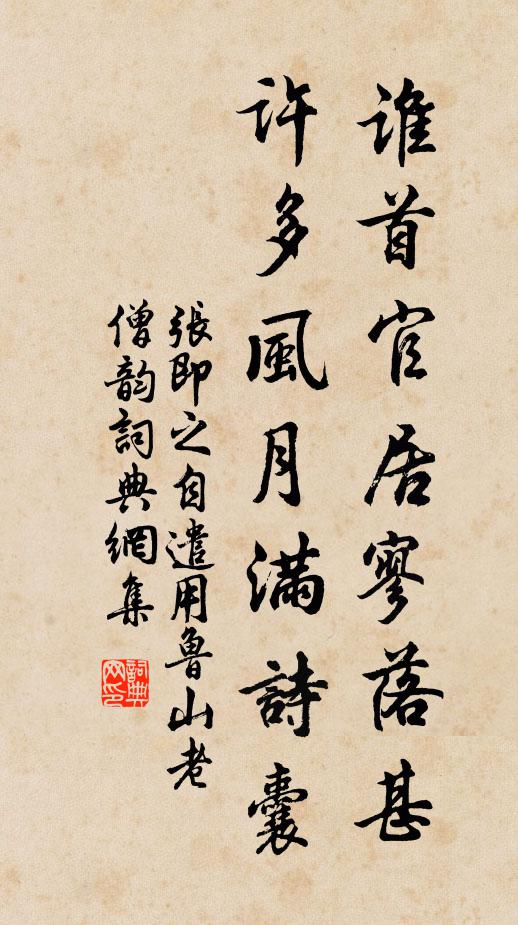 誰首官居寥落甚
許多風月滿詩囊
張即之自遣用魯山老
僧韵詞典網集
詞典网印